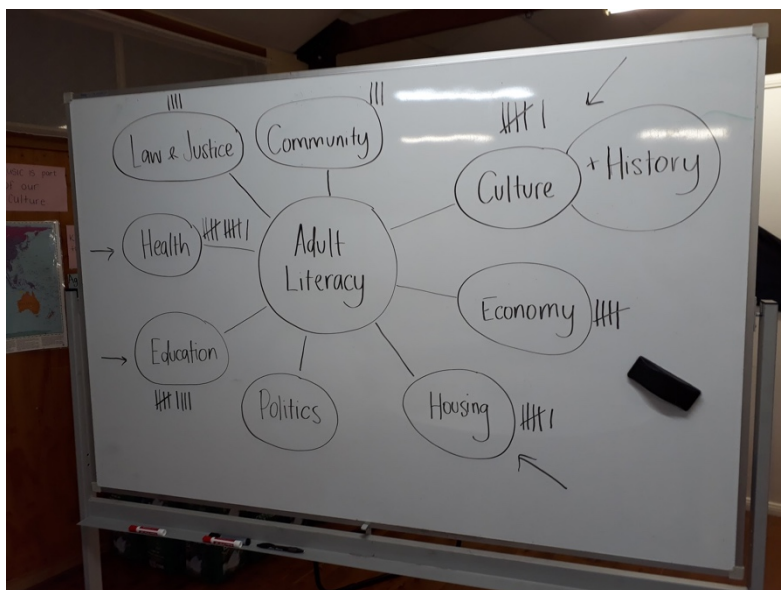 Law & Justice
Community
Culture
+ History
Health
Adult
Literacy
Economy
Education
Politics
Housing
is part
our
Culture